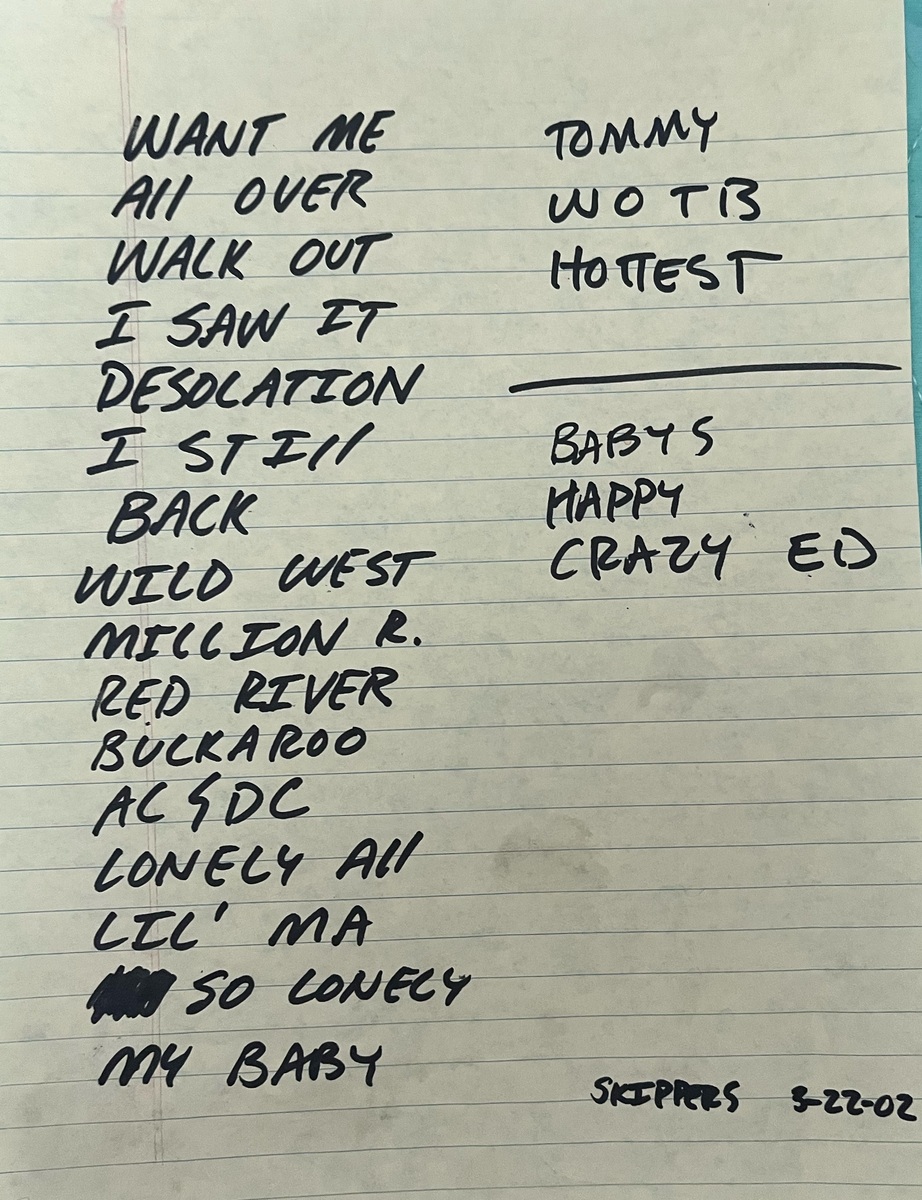 WANT ME
All OVER
WALK OUT
I SAW IT
DESOLATION
I STIll
BACK
WILD WEST
MILLION R.
RED RIVER
BUCKAROO
AC⚡DC
LONELY All
LIL' MA
SO LONELY
MY BABY
TOMMY
WOTB
HOTTEST
BABYS
HAPPY
CRAZY ED
SKIPPERS 3-22-02